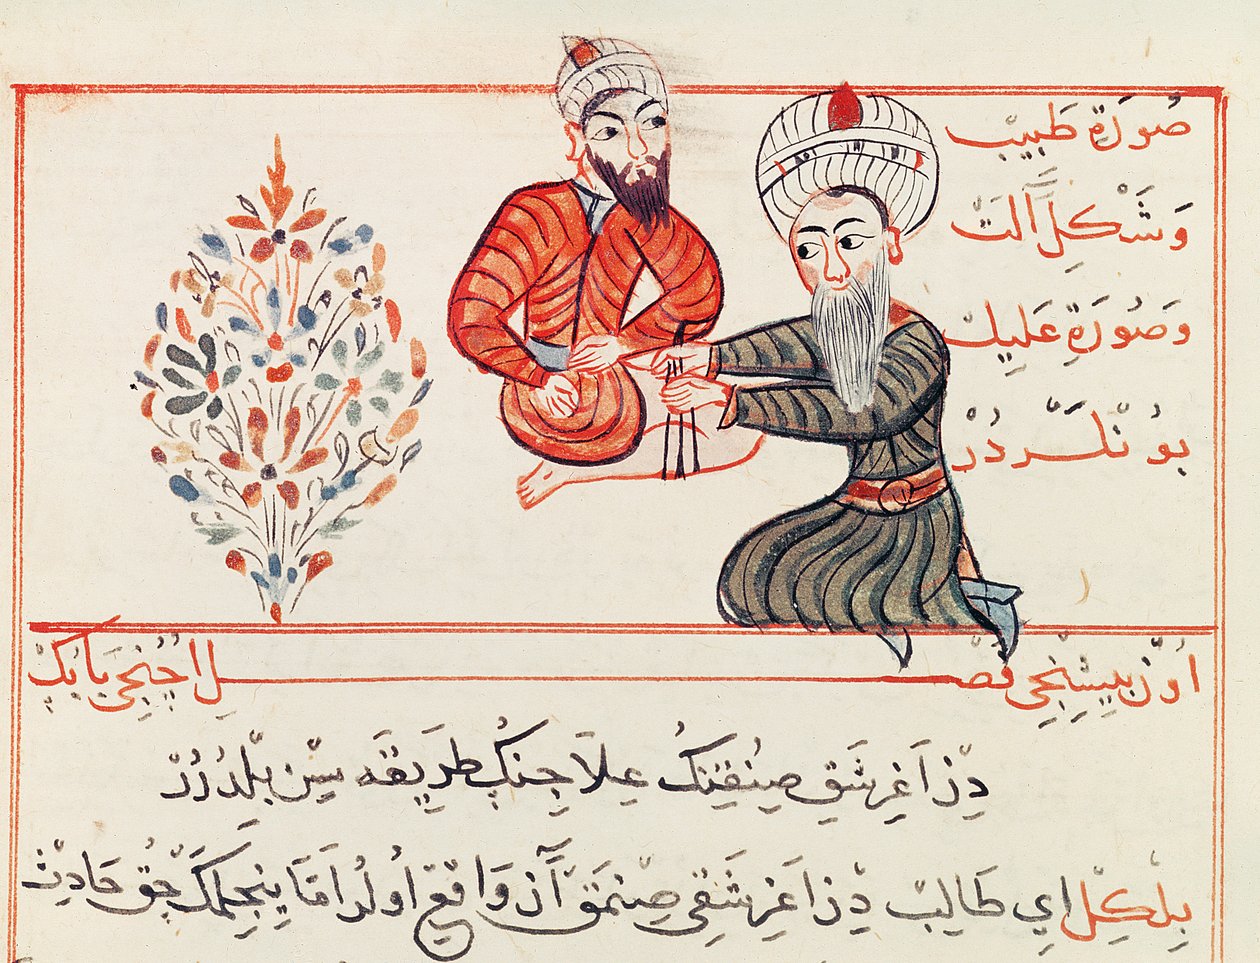 صُورَةِ طَبِيبْ
وَشَكْلِ آلَتْ
وَصُورَةِ عَلِيلْ
بُونْلَرْدُرْ
اُونْ بِيشِنْجِي فصـلِ اُوچُنْجِي بَابُكْ
دِزْ اَغِرْشَقِ صِنُقِنِكْ عِلَاجِنِكْ طَرِيقَه سِينْ بِلْدُرُرْ
بِلْكِلْ اِي طَالِبْ دِزْ اَغِرْشَقِي صِنْمَقْ آزْ وَاقِعْ اُولُرْ اَمَّا يِنْجِلْمَكْ چُقْ حَادِثْ